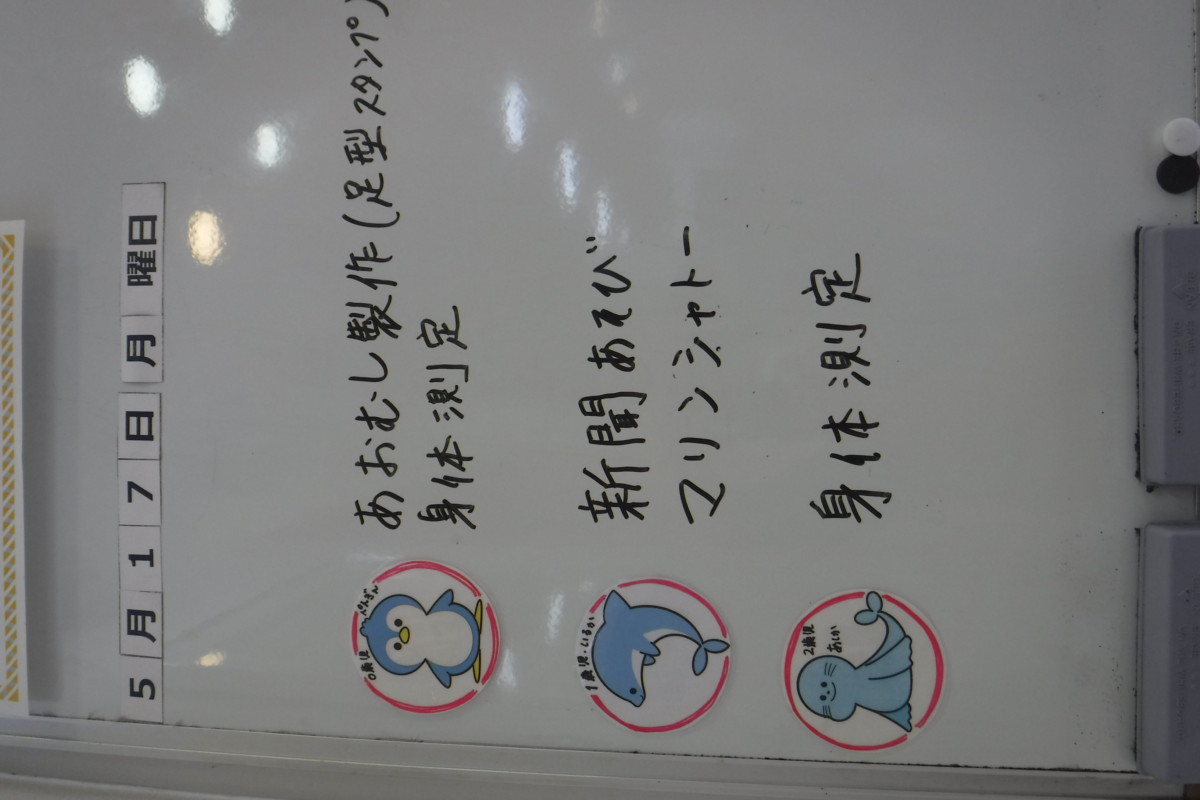 5月17日 月曜日
0歳児 ぺんぎん
あおむし製作(足型スタンプ)
身体測定
1歳児・いるか
新聞あそび
マリンシャトー
2歳児
あしか
身体測定